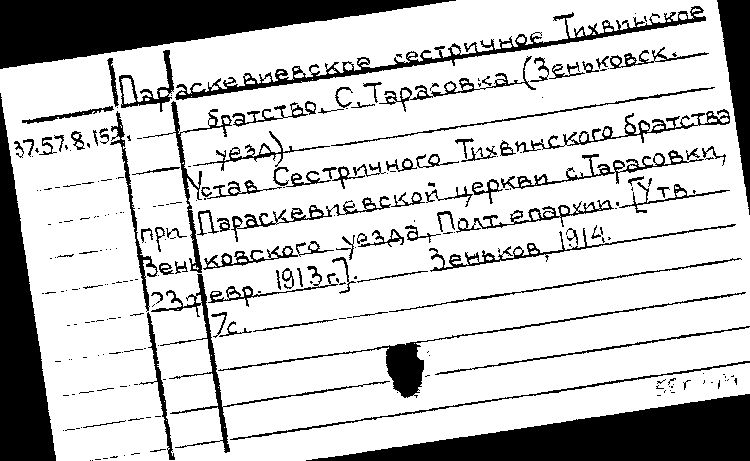 Параскевиевское сестричное Тихвинское
братство. С. Тарасовка. (Зеньковск.
37.57.8.152.
уезд).
Устав Сестричного Тихвинского братства
при Параскевиевской церкви с. Тарасовки,
Зеньковского уезда, Полт. епархии. [Утв.
23 февр. 1913 г.]. Зеньков, 1914.
7с.